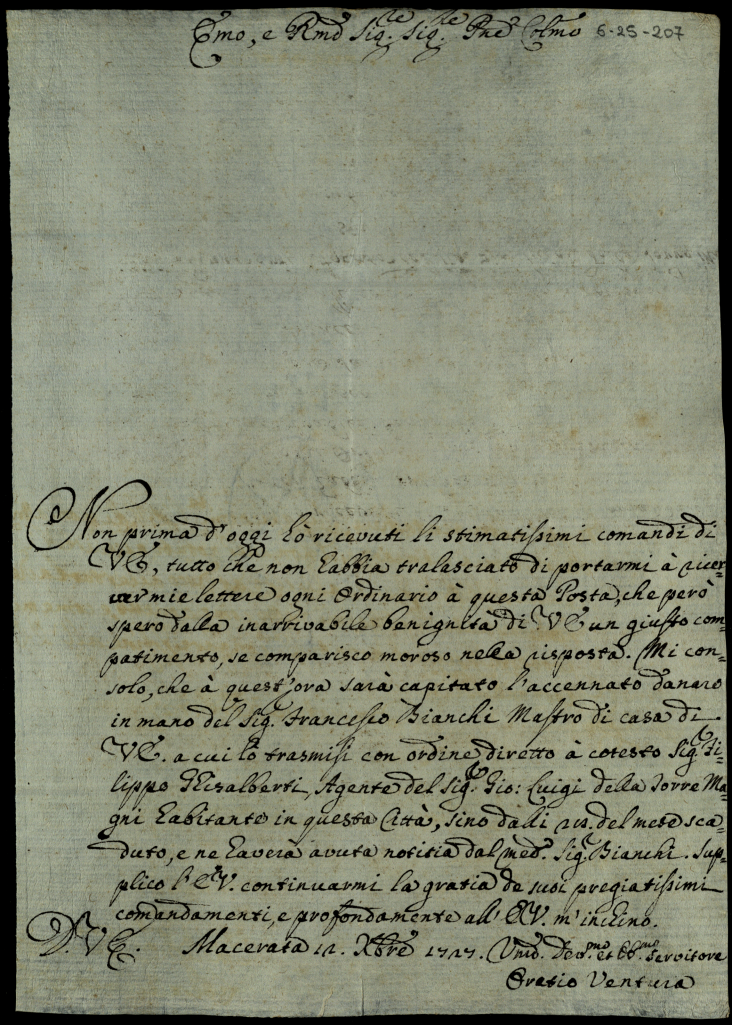 Emo, e Rmo Sig.re Sig.re Pne Colmo 6-25-207
Non prima d'oggi hò ricevuti li stimatissimi comandi di
VE, tutto che non habbia tralasciato di portarmi à ricer-
var mie lettere ogni Ordinario à questa Posta, che però
spero dalla inarrivabile benignità di VE un giusto com-
patimento, se comparisco moroso nella risposta. Mi con-
solo, che à quest'ora sarà capitato l'accennato danaro
in mano del Sig.r Francesco Bianchi Mastro di casa di
VE. a cui lo trasmisi con ordine diretto à cotesto Sig.r Fi-
lippo Ghisalberti, Agente del Sig.r Gio: Luigi della Torre Ma-
gni habitante in questa Città, sino dalli del mese sca-
duto, e ne haverà avuta notitia dal med.o Sig.r Bianchi. Sup-
plico l'E.V. continuarmi la gratia de suoi pregiatissimi
comandamenti, e profondamente all'E.V. m'inchino.
D. VE. Macerata 12. Xbre 1727. Umo. Dev.mo et Obb.mo Servitore
Oratio Ventura